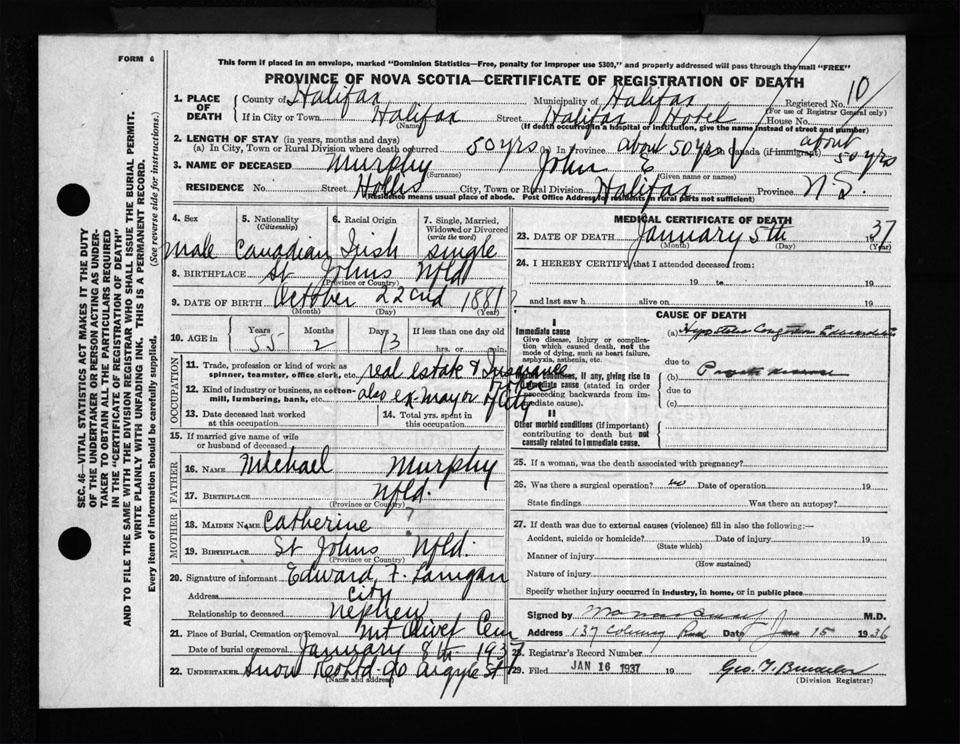 FORM 6
This form if placed in an envelope, marked "Dominion Statistics—Free, penalty for improper use $300," and properly addressed will pass through the mail "FREE"
PROVINCE OF NOVA SCOTIA—CERTIFICATE OF REGISTRATION OF DEATH
1. PLACE OF DEATH County of Halifax Municipality of Halifax Registered No. 10
(For use of Registrar General only)
If in City or Town Halifax Street Halifax Hotel House No.
(Name) (If death occurred in a hospital or institution, give the name instead of street and number)
2. LENGTH OF STAY (in years, months and days)
(a) In City, Town or Rural Division where death occurred 50 yrs (b) In Province about 50 yrs (c) In Canada (if immigrant) about 50 yrs
3. NAME OF DECEASED Murphy John E
(Surname) (Given name or names)
RESIDENCE No. Street Hollis City, Town or Rural Division Halifax Province N.S.
(Residence means usual place of abode. Post Office Address for residents in rural parts not sufficient)
4. Sex 5. Nationality (Citizenship) 6. Racial Origin 7. Single, Married, Widowed or Divorced (write the word)
Male Canadian Irish Single
8. BIRTHPLACE St Johns Nfld
(Province or Country)
9. DATE OF BIRTH October 22nd 1881
(Month) (Day) (Year)
10. AGE in Years Months Days If less than one day old
55 2 13 hrs. or min.
OCCUPATION
11. Trade, profession or kind of work as spinner, teamster, office clerk, etc. real estate & Insurance
12. Kind of industry or business, as cotton-mill, lumbering, bank, etc. also ex-mayor of City
13. Date deceased last worked at this occupation
14. Total yrs. spent in this occupation
15. If married give name of wife or husband of deceased
FATHER
16. NAME Michael Murphy
17. BIRTHPLACE Nfld.
(Province or Country)
MOTHER
18. MAIDEN NAME Catherine ?
19. BIRTHPLACE St Johns Nfld.
(Province or Country)
20. Signature of informant Edward F. Lanigan
Address City
Relationship to deceased nephew
21. Place of Burial, Cremation or Removal Mt Olivet Cem
Date of burial or removal January 8th 1937
22. UNDERTAKER Snow & Co Ltd 90 Argyle St
(Name and address)
MEDICAL CERTIFICATE OF DEATH
23. DATE OF DEATH January 5th 1937
(Month) (Day) (Year)
24. I HEREBY CERTIFY that I attended deceased from:
19 to 19
and last saw h alive on 19
CAUSE OF DEATH
I
Immediate cause
Give disease, injury or complication which caused death, not the mode of dying, such as heart failure, asphyxia, asthenia, etc.
(a) Hypostatic Congestion
due to
Morbid conditions, if any, giving rise to immediate cause (stated in order proceeding backwards from immediate cause).
(b)
due to
(c)
II
Other morbid conditions (if important) contributing to death but not causally related to immediate cause.
25. If a woman, was the death associated with pregnancy?
26. Was there a surgical operation? no Date of operation 19
State findings Was there an autopsy?
27. If death was due to external causes (violence) fill in also the following:—
Accident, suicide or homicide? Date of injury 19
(State which)
Manner of injury
(How sustained)
Nature of injury
Specify whether injury occurred in industry, in home, or in public place
Signed by M.D.
Address 137 Date Jan 15 1936
28. Registrar's Record Number
29. Filed JAN 16 1937 19
(Division Registrar)
SEC. 46—VITAL STATISTICS ACT MAKES IT THE DUTY
OF THE UNDERTAKER OR PERSON ACTING AS UNDER-
TAKER TO OBTAIN ALL THE PARTICULARS REQUIRED
IN THE "CERTIFICATE OF REGISTRATION OF DEATH"
AND TO FILE THE SAME WITH THE DIVISION REGISTRAR WHO SHALL ISSUE THE BURIAL PERMIT.
WRITE PLAINLY WITH UNFADING INK. THIS IS A PERMANENT RECORD.
Every item of information should be carefully supplied. (See reverse side for instructions.)